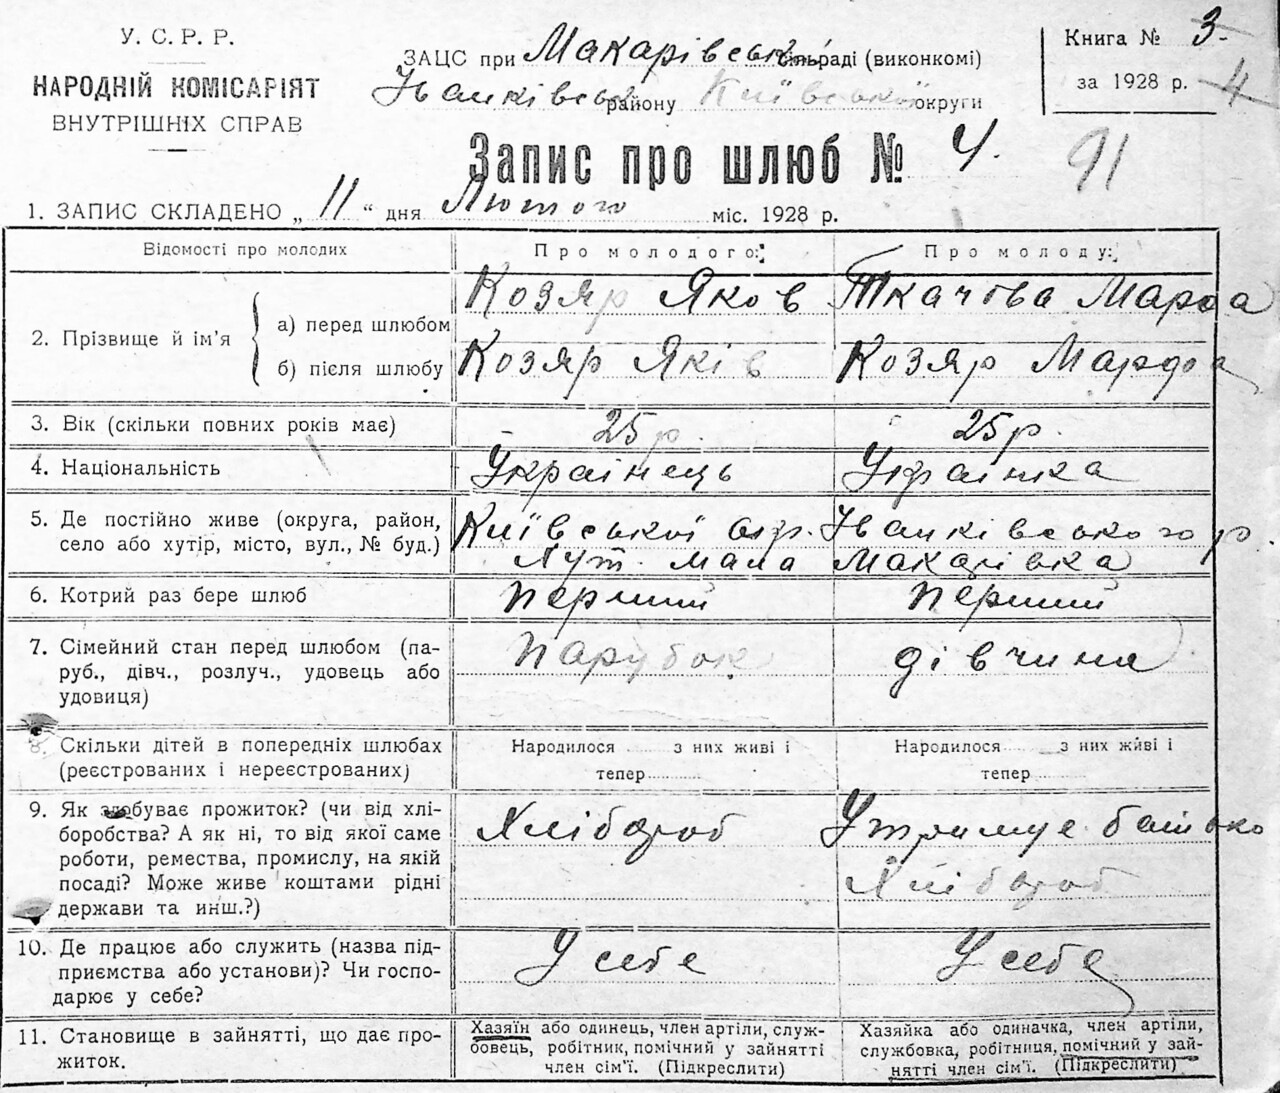 У. С. Р. Р.
НАРОДНІЙ КОМІСАРІЯТ
ВНУТРІШНІХ СПРАВ
ЗАЦС при Макарівськ сільраді (виконкомі)
Іванківськ району Київської округи
Книга № 3
за 1928 р. 4
Запис про шлюб № 4.
91
1. ЗАПИС СКЛАДЕНО „ 11 “ дня Лютого міс. 1928 р.
Відомості про молодих
Про молодого:
Про молоду:
2. Прізвище й ім’я
а) перед шлюбом
Козяр Яков
Ткачова Марфа
б) після шлюбу
Козяр Яків
Козяр Марфа
3. Вік (скільки повних років має)
25 р.
25 р.
4. Національність
Українець
Українка
5. Де постійно живе (округа, район,
село або хутір, місто, вул., № буд.)
Київської окр. Іванківського р.
Хут. Мала Макарівка
6. Котрий раз бере шлюб
перший
перший
7. Сімейний стан перед шлюбом (па-
руб., дівч., розлуч., удовець або
удовиця)
парубок
дівчина
8. Скільки дітей в попередніх шлюбах
(реєстрованих і нереєстрованих)
Народилося з них живі і
тепер
Народилося з них живі і
тепер
9. Як здобуває прожиток? (чи від хлі-
боробства? А як ні, то від якої саме
роботи, ремества, промислу, на якій
посаді? Може живе коштами рідні
держави та инш.?)
Хлібороб
Утримує батько
Хлібороб
10. Де працює або служить (назва під-
приємства або установи)? Чи госпо-
дарює у себе?
У себе
У себе
11. Становище в зайнятті, що дає про-
житок.
Хазяїн або одинець, член артіли, служ-
бовець, робітник, помічний у зайнятті
член сім’ї. (Підкреслити)
Хазяйка або одиначка, член артіли,
службовка, робітниця, помічний у зай-
нятті член сім’ї. (Підкреслити)